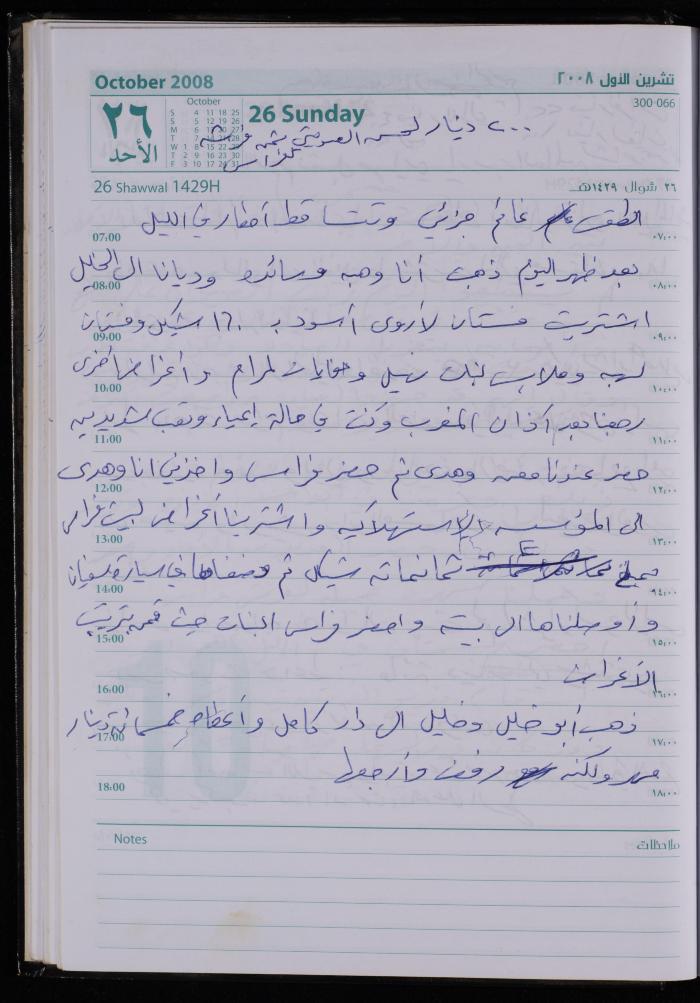 October 2008
تشرين الأول ٢٠٠٨
٢٦
الأحد
October
S 4 11 18 25
S 5 12 19 26
M 6 13 20 27
T 7 14 21 28
W 1 8 15 22 29
T 2 9 16 23 30
F 3 10 17 24 31
26 Sunday
300-066
٢٠٠ دينار لحسن ثمن
26 Shawwal 1429H
٢٦ شوال ١٤٢٩هـ
الطقس غائم جزئي وتتساقط أمطار في الليل
07:00 ٠٧:٠٠
بعد ظهر اليوم ذهبت أنا وهبه وسائده وديانا الى الخليل
08:00 ٠٨:٠٠
اشتريت فستان لأروى أسود بـ ١٦٠ شيكل وفستان
09:00 ٠٩:٠٠
لهبه وملابس لبنات وحفايات لمرام وأغراض أخرى
10:00 ١٠:٠٠
رجعنا بعد أذان المغرب وكنت في حالة إعياء وتعب شديدين
11:00 ١١:٠٠
حضر عندنا معن وهدى ثم حضر فراس واخذني انا وهدى
12:00 ١٢:٠٠
الى المؤسسه الاستهلاكيه واشترينا أغراض لبيت فراس
13:00 ١٣:٠٠
بمبلغ ثمانمائه شيكل ثم وضعناها في سيارة
14:00 ١٤:٠٠
وأوصلناها الى بيته واحضر فراس البنات حيث قمن بترتيب
15:00 ١٥:٠٠
الأغراض
16:00 ١٦:٠٠
ذهب أبو خليل وخليل الى دار كامل وأعطاه خمسمائة دينار
17:00 ١٧:٠٠
ولكنه رفض وأرجعها
18:00 ١٨:٠٠
Notes
ملاحظات